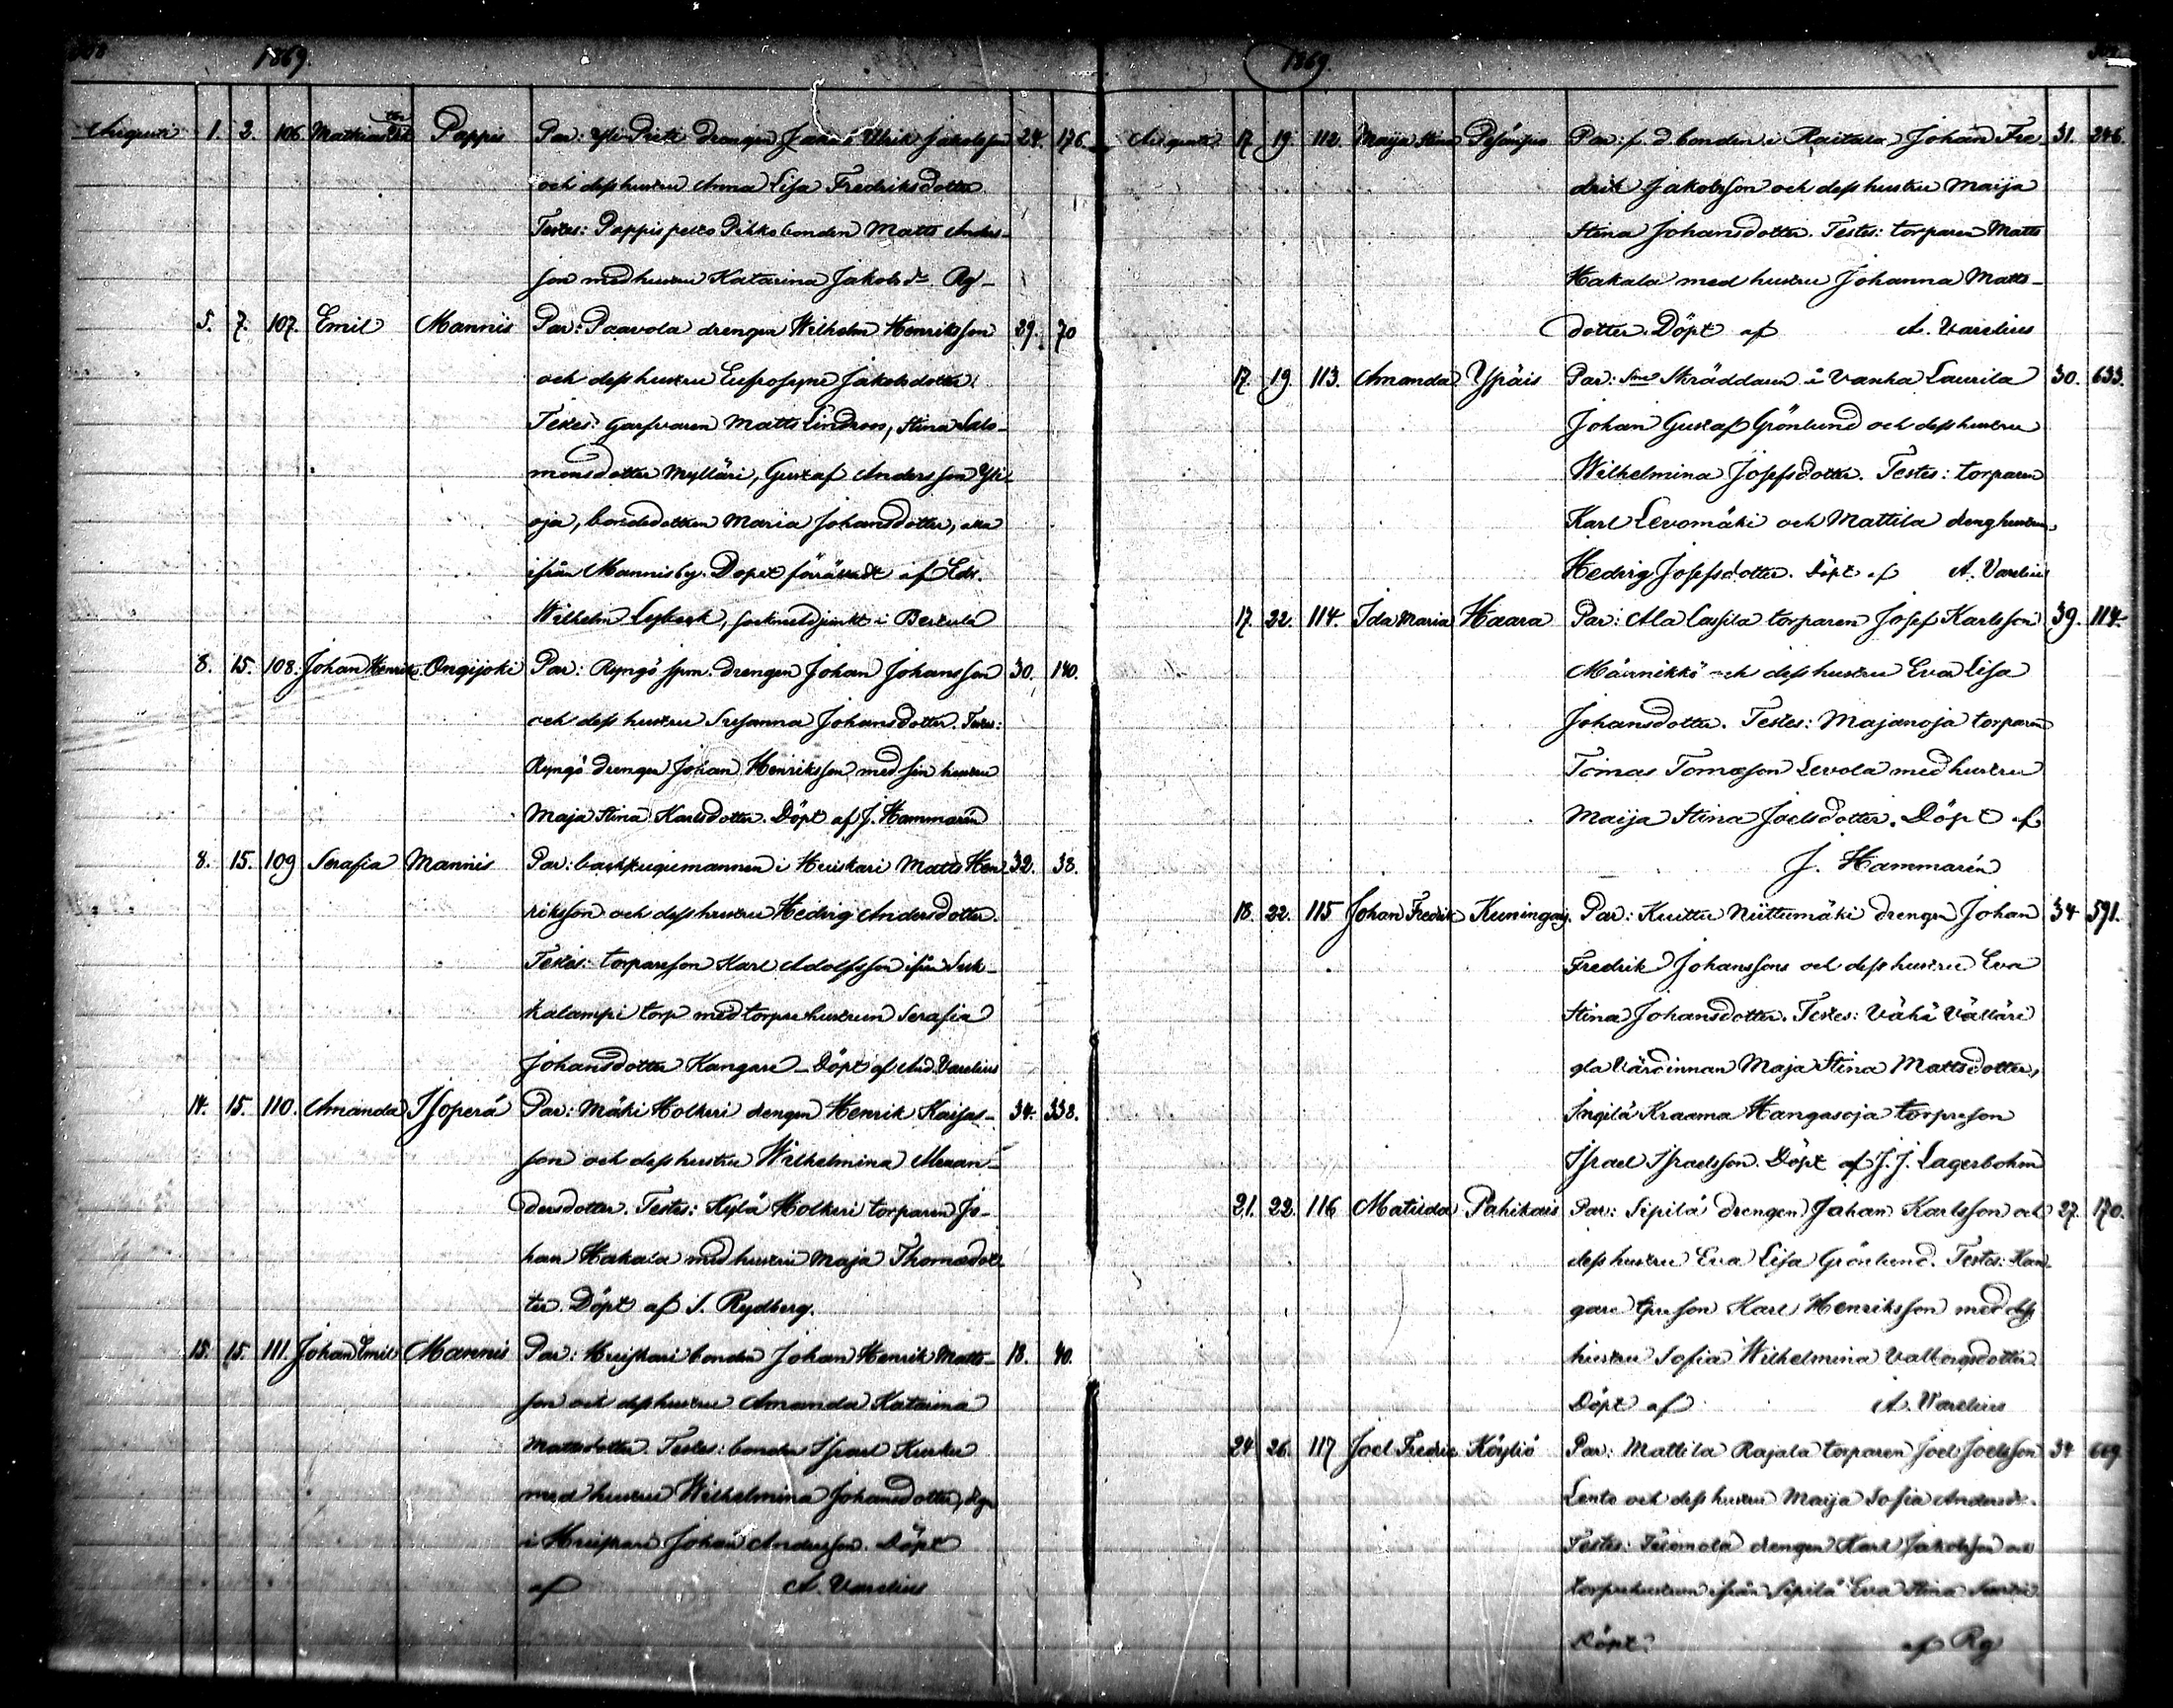 1869.
Augusti 1. 2. 106. Pappis Par: Yli Prik drengen Ulrik Jakobsson 24. 176
och dess hustru Anna Lisa Fredriksdotter
Testes: Pikko bonden Matts Anders-
son med hustru Katarina Jakobsdr Rg
5. 7. 107. Emil Mannis Par: Paavola drengen Wilhelm Henriksson 29. 70
och dess hustru Eufrosyne Jakobsdotter
Testes: Garfvaren Matts Lindroos, Stina Salo-
monsdotter Mylläri, Gustaf Andersson Yli
oja, bondedottren Maria Johansdotter, alla
ifrån Mannisby. Dopet förrättadt af
Wilhelm i
8. 15. 108. Johan Henrik Ongijoki Par: Ryngö spm. drengen Johan Johansson 30. 140.
och dess hustru Susanna Johansdotter. Testes:
Ryngö drengen Johan Henriksson med sin hustru
Maja Stina Karlsdotter. Döpt af J. Hammarén
8. 15. 109 Serafia Mannis Par: i Huiskari Matts Hen 32. 38.
riksson och dess hustru Hedvig Andersdotter.
Testes: torpareson Karl Adolfsson ifrån
kalampi torp med torpare hustrun Serafia
Johansdotter Kangare. Döpt af And. Varelius
14. 15. 110. Amanda Isoperä Par: Mäki Holkeri drengen Henrik 34. 338.
son och dess hustru Wilhelmina Alexan-
dersdotter. Testes: Kylä Holkeri torparen Jo-
han Hakala med hustru Maja Thomasdot
ter. Döpt af S. Rydberg.
15. 15. 111. Johan Emil Mannis Par: Huiskari bonden Johan Henrik Matts- 18. 40.
son och dess hustru Amanda Katarina
Mattsdotter. Testes: bonden Israel Kurku
med hustru Wilhelmina Johansdotter,
i Huiskari Johan Andersson. Döpt
af A. Varelius
1869.
Augusti 17. 19. 112. Maija Stina Par: f. d bonden i Raitala Johan Fre- 31. 246.
drik Jakobsson och dess hustru Maija
Stina Johansdotter. Testes: torparen Matts
Hakala med hustru Johanna Matts-
dotter. Döpt af A. Varelius
17. 19. 113. Amanda Ypäis Par: Skräddaren i Vanha Laurila 30. 633.
Johan Gustaf Grönlund och dess hustru
Wilhelmina Josefsdotter. Testes: torparen
Karl Levomäki och Mattila drenghustrun
Hedvig Josefsdotter. Döpt af A. Varelius
17. 22. 114. Ida Maria Haara Par: Ala Lassila torparen Josef Karlsson 39. 114.
Männikkö och dess hustru Eva Lisa
Johansdotter. Testes: Majanoja torparen
Tomas Tomasson Levola med hustru
Maija Stina Joelsdotter. Döpt af
J. Hammarén
18. 22. 115 Johan Fredrik Kuningaj. Par: Kuittu Niittumäki drengen Johan 34 591.
Fredrik Johansson och dess hustru Eva
Stina Johansdotter. Testes: Vähä Välläri
gla värdinnan Maja Stina Mattsdotter,
Ingilä Kraama Hangasoja torpareson
Israel Israelsson. Döpt af J. J. Lagerbohm
21. 22. 116 Matilda Pahikais Par: Sipilä drengen Johan Karlsson och 27. 170.
dess hustru Eva Lisa Grönlund. Testes: Kan-
gare tpreson Karl Henriksson med dess
hustru Sofia Wilhelmina Valborgsdotter
Döpt af A. Varelius
24 26. 117 Joel Fredrik Köyliö Par: Mattila Rajala torparen Joel Joelsson 34 669
Lento och dess hustru Maija Sofia Andersdr.
Testes: drengen Karl Jakobsson och
torparehustrun ifrån Sipilä Eva Stina
Döpt af Rg